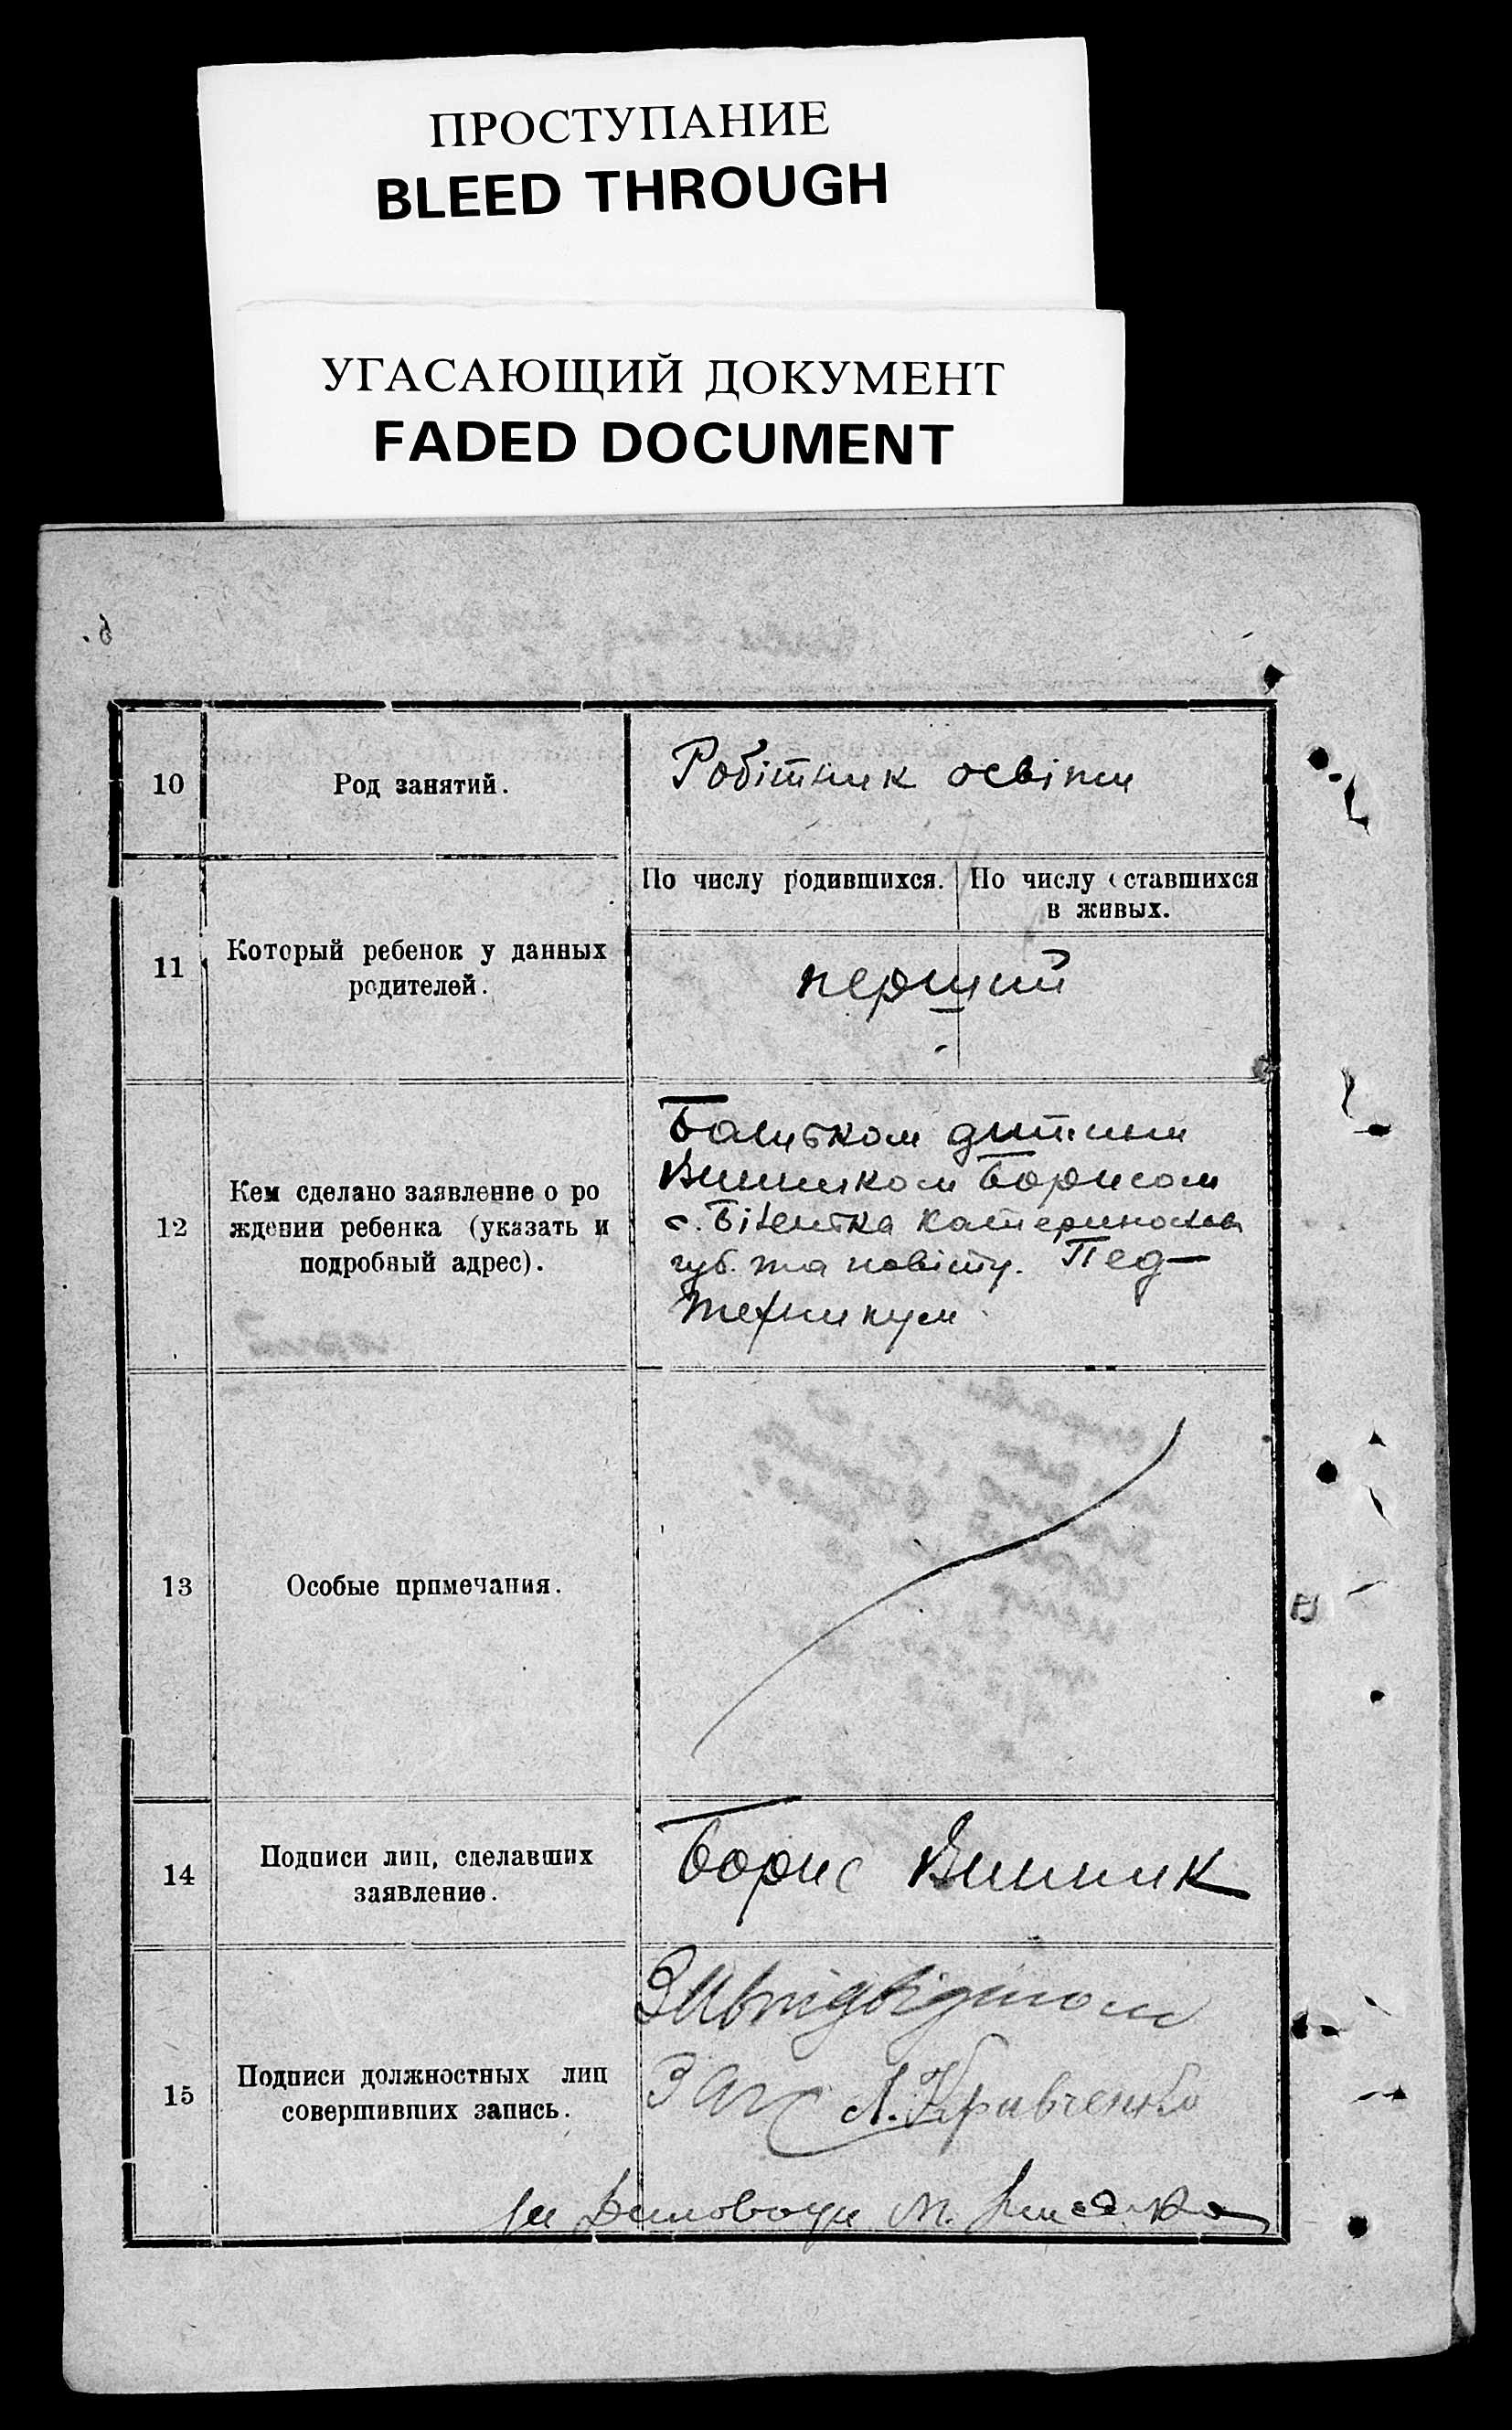 ПРОСТУПАНИЕ
BLEED THROUGH
УГАСАЮЩИЙ ДОКУМЕНТ
FADED DOCUMENT
10
Род занятий.
Робітник освіти
11
Который ребенок у данных
родителей.
По числу родившихся.
По числу ставшихся
в живых.
перший
12
Кем сделано заявление о ро
ждении ребенка (указать и
подробный адрес).
Батьком дитини
Винником Борисом
с. Катеринослав
губ. та повіту. Пед-
техникум
13
Особые примечания.
14
Подписи лиц, сделавших
заявление.
Борис Винник
15
Подписи должностных лиц
совершивших запись.
Завпідвідділом
Загс Л. Кравченко
Діловод М.